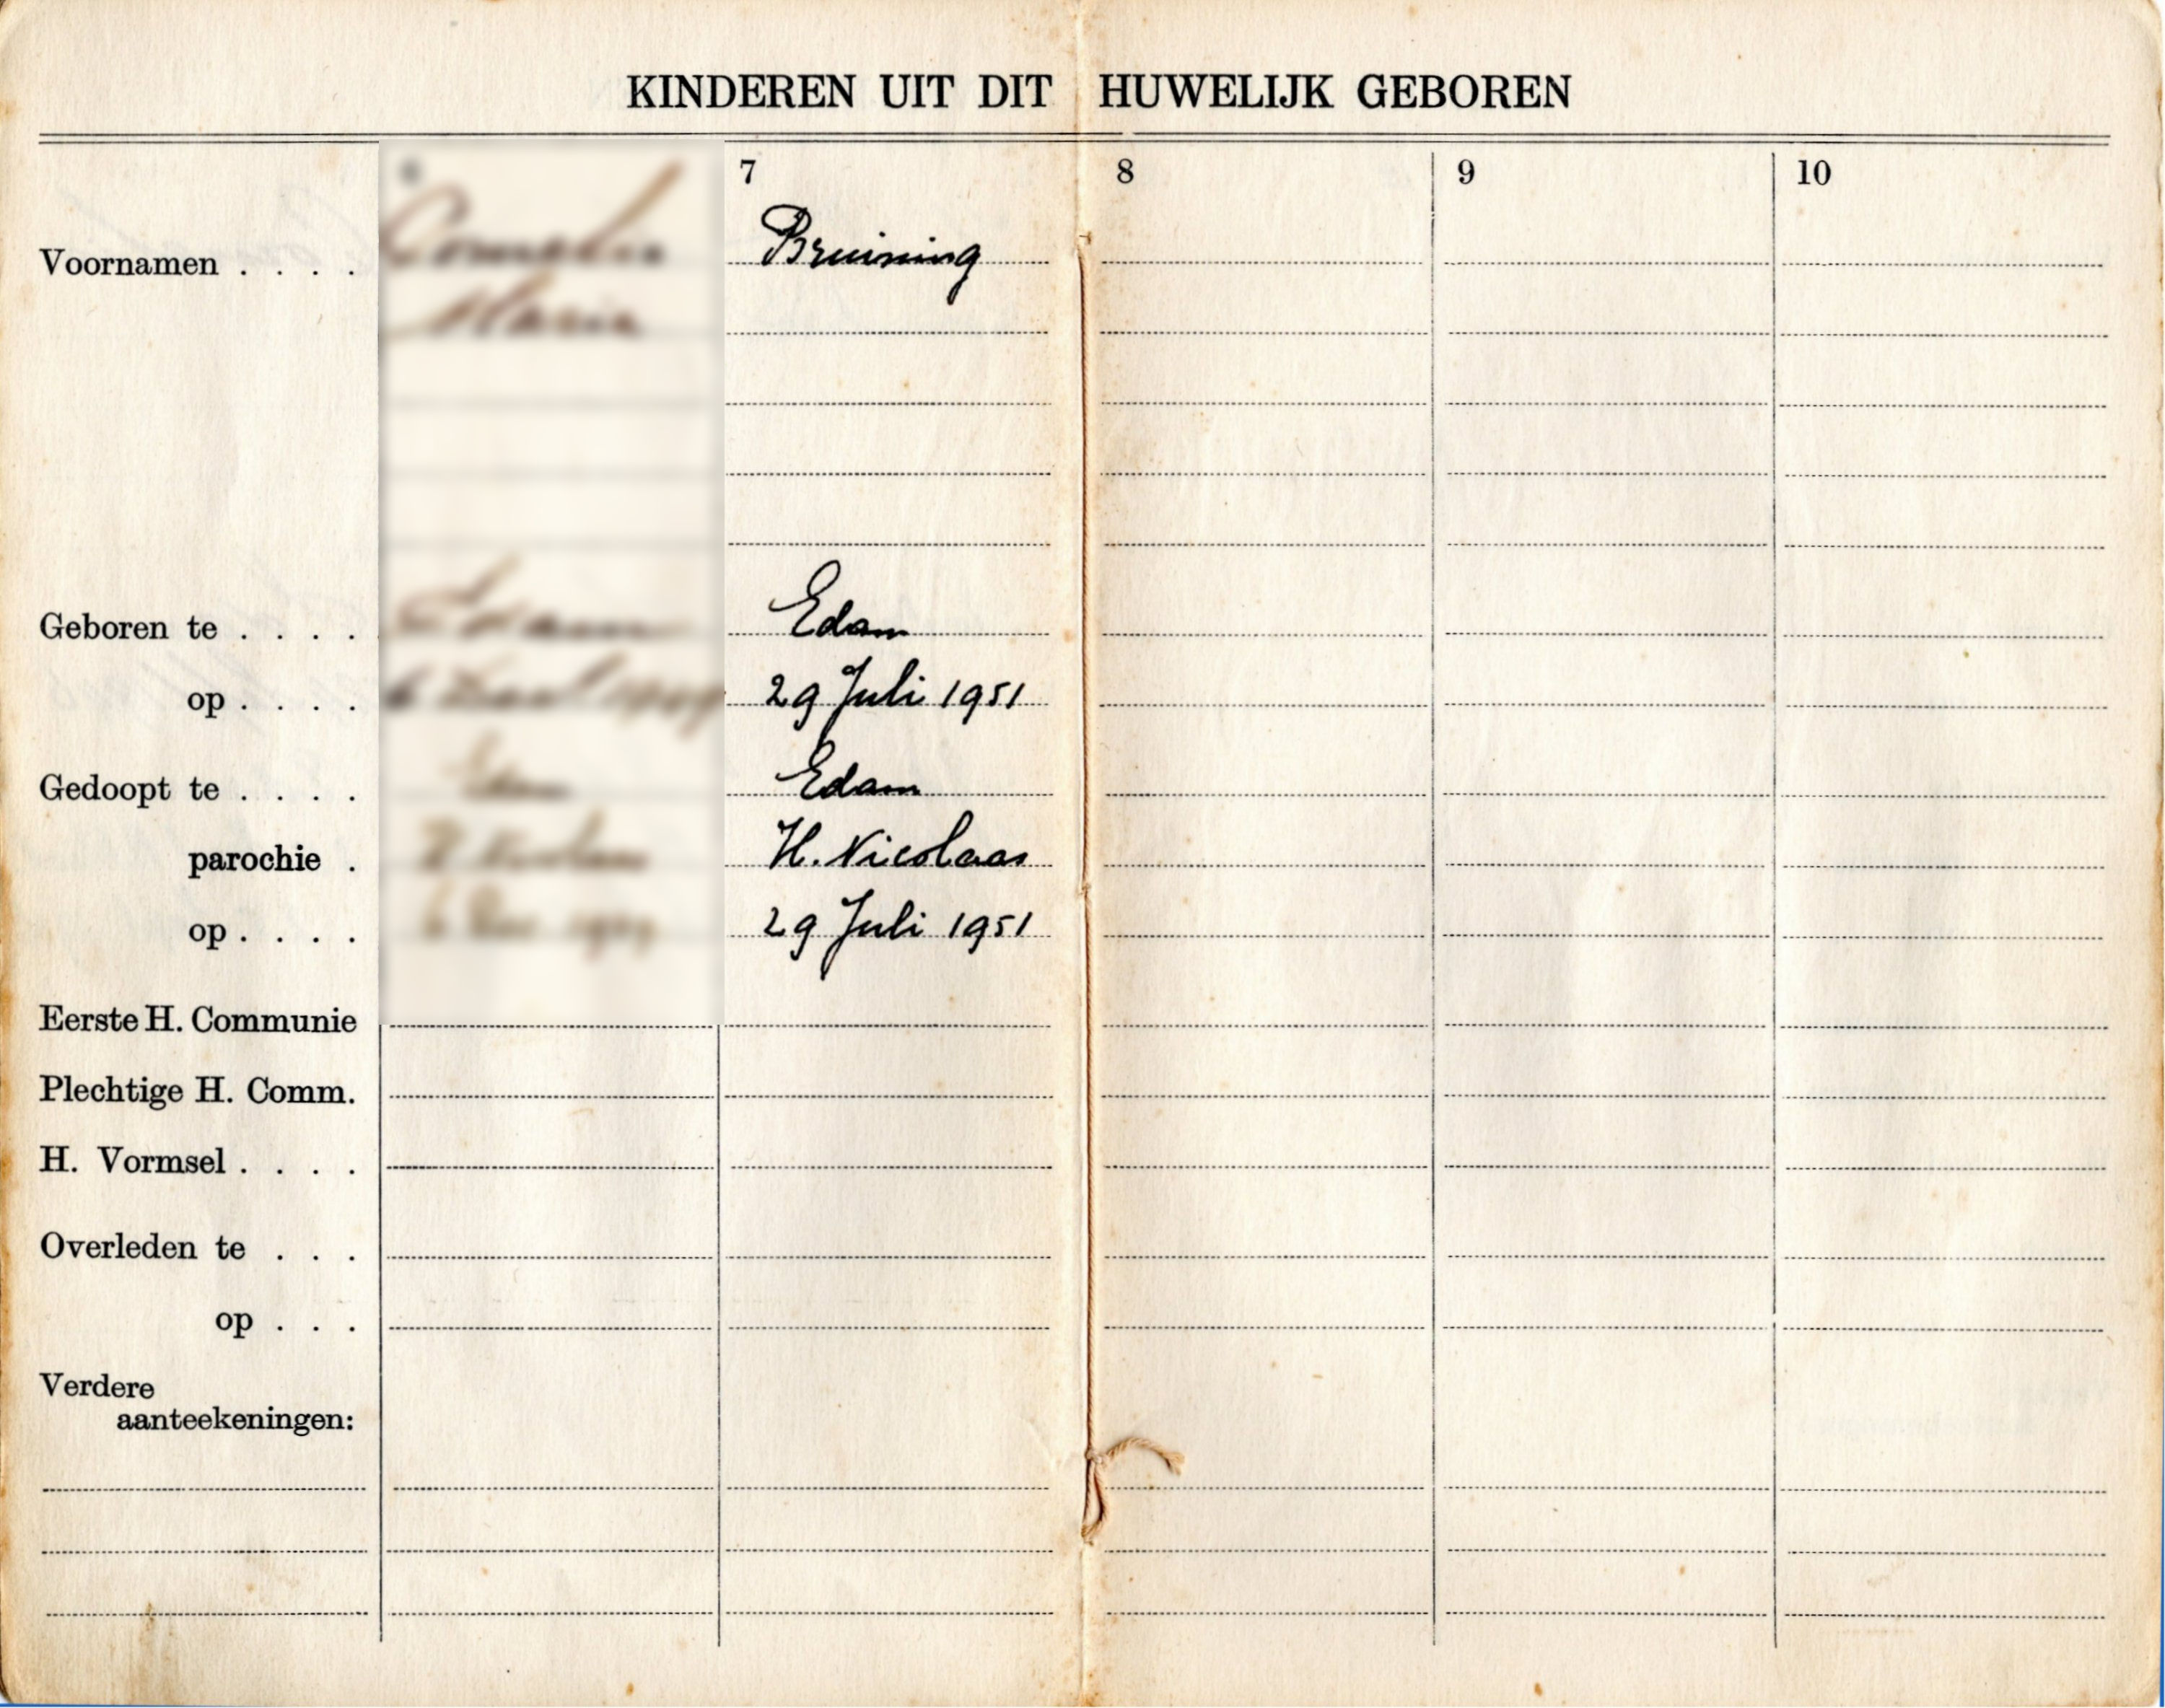 KINDEREN UIT DIT HUWELIJK GEBOREN
7 8 9 10
Voornamen . . . . Bruining
Geboren te . . . . Edam
op . . . . 29 Juli 1951
Gedoopt te . . . . Edam
parochie . H. Nicolaas
op . . . . 29 Juli 1951
Eerste H. Communie
Plechtige H. Comm.
H. Vormsel . . . .
Overleden te . . .
op . . .
Verdere
aanteekeningen: